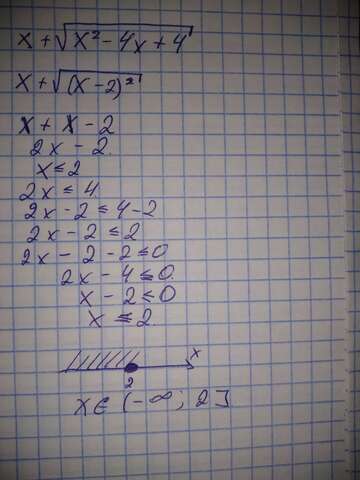 x + √(x² - 4x + 4)
x + √((x - 2)²)
x + x - 2
2x - 2
x ≤ 2
2x ≤ 4
2x - 2 ≤ 4 - 2
2x - 2 ≤ 2
2x - 2 - 2 ≤ 0
2x - 4 ≤ 0
x - 2 ≤ 0
x ≤ 2
x
2
x ∈ (-∞; 2]